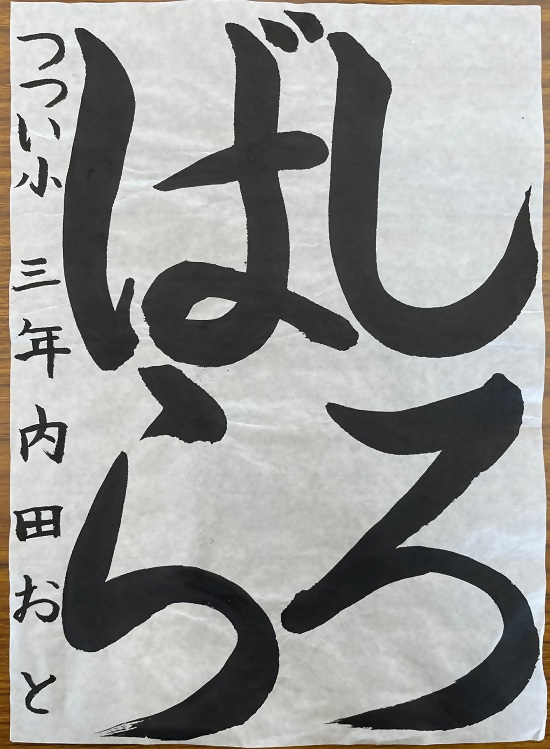 しろ
ばら
つつい小 三年 内田おと